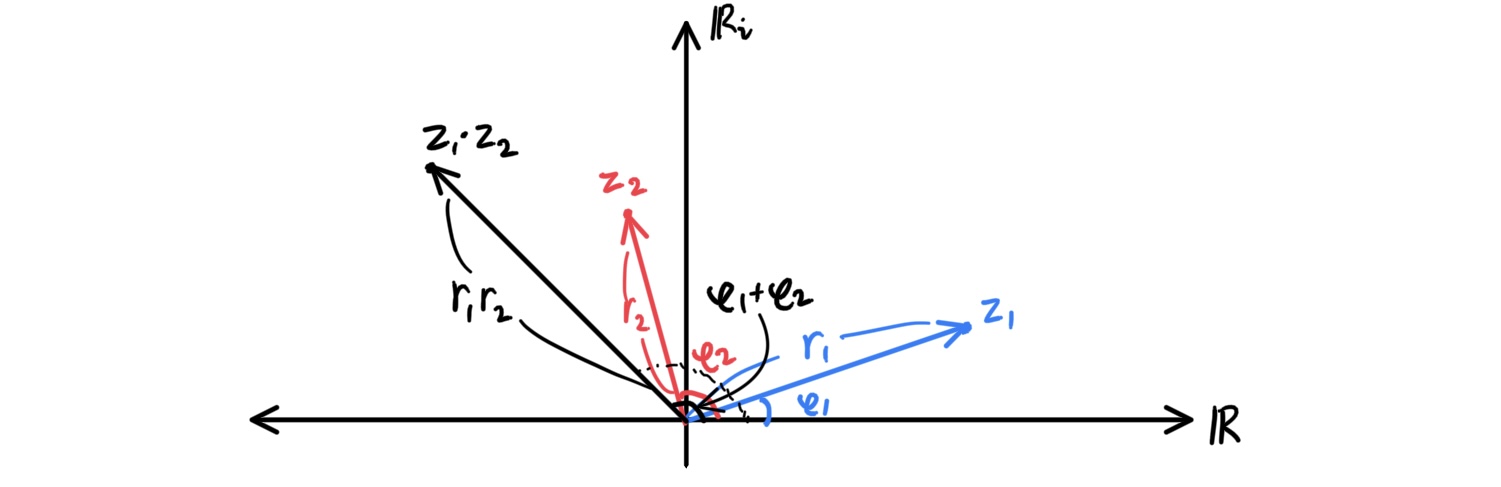 ℝi
z₁·z₂
z₂
r₁r₂
r₂
φ₁+φ₂
φ₂
r₁
z₁
φ₁
ℝ